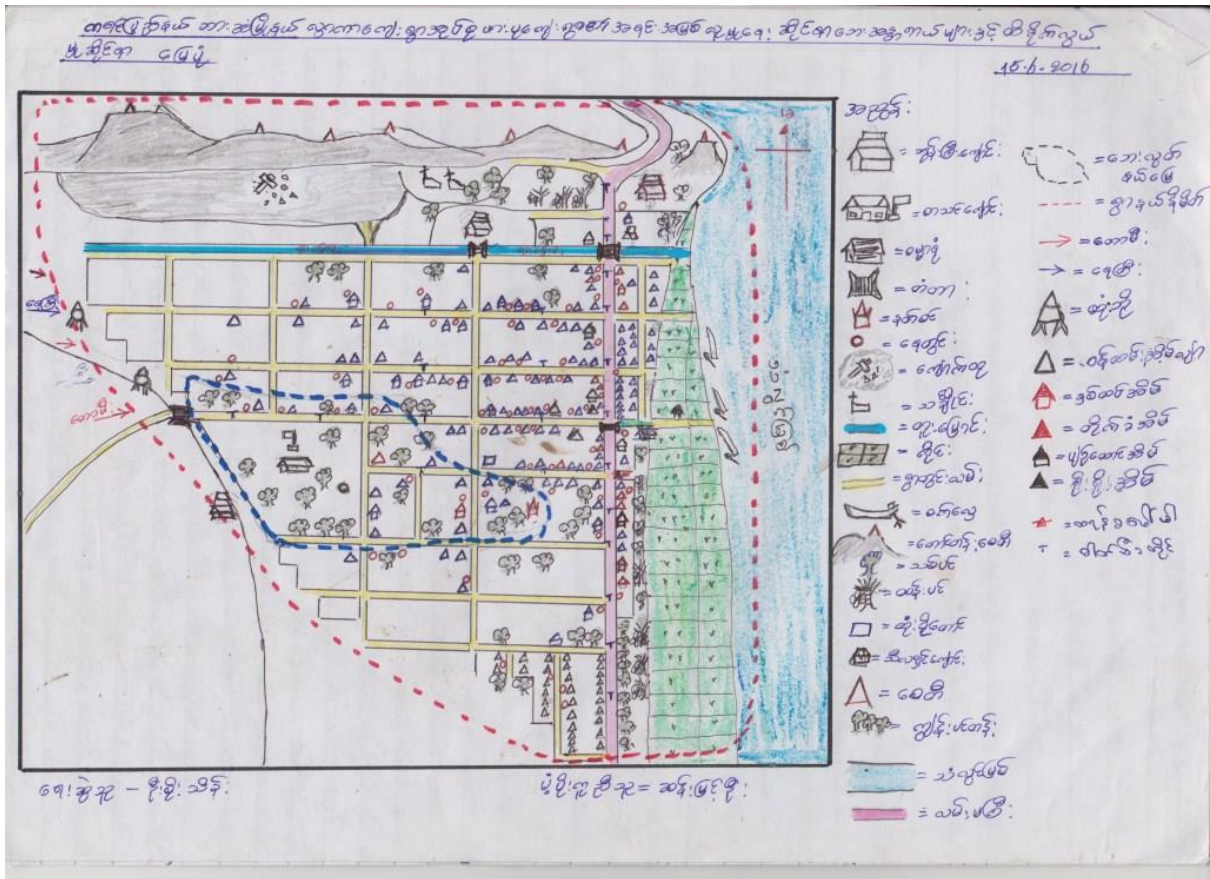 ကရင်ပြည်နယ် ဘားအံမြို့နယ် ကျေးရွာအုပ်စု ကျေးရွာ၏ အရင်းအမြစ် လူမှုရေး ဆိုင်ရာ ဘေးအန္တရာယ်များနှင့် ထိခိုက်လွယ်
မှုဆိုင်ရာ မြေပုံ
15.6.2016
အညွှန်း
= ဘုန်းကြီးကျောင်း
= စာသင်ကျောင်း
= ဓမ္မာရုံ
= တံတား
= နတ်စင်
= ရေတွင်း
= ကျောက်ထု
= သချိုင်း
= တူးမြောင်း
= စိုင်း
= ရွာတွင်းလမ်း
= စက်လှေ
= တောင်တန်း စေတီ
= သစ်ပင်
= ထန်းပင်
= သီလရှင်ကျောင်း
= စေတီ
= ကျွန်းပင်တန်း
= သံလွင်မြစ်
= လမ်းမကြီး
= ဘေးလွတ်
နယ်မြေ
= ရွာနယ်နိမိတ်
= တောမီး
= ရေကြီး
= နှစ်ထပ်အိမ်
= တိုက်ခံအိမ်
= ပျဉ်ထောင်အိမ်
= ဓါတ်မီးတိုင်
ရေကြီး
တောမီး
သံလွင်မြစ်
ရေးဆွဲသူ - စိုးစိုးသိန်း
ပံ့ပိုးကူညီသူ = ဆန်းမြင့်စိုး